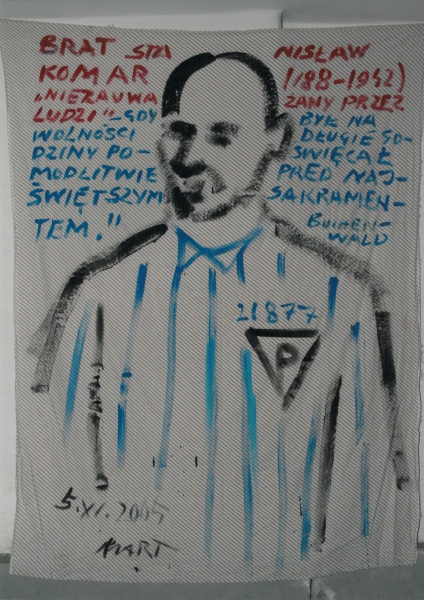 BRAT STA NISŁAW
KOMAR (188-1942)
„NIEZAUWA ŻANY PRZEZ
LUDZI" - GDY BYŁ NA
WOLNOŚCI DŁUGIE GO-
DZINY PO- ŚWIĘCAŁ
MODLITWIE PRED NAJ-
ŚWIĘTSZYM SAKRAMEN-
TEM."
WALD
21877
P
5.XI.2005